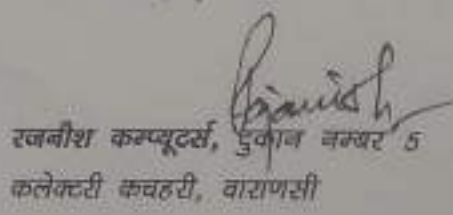 Rajanish
रजनीश कम्प्यूटर्स, दुकान नम्बर 5
कलेक्टरी कचहरी, वाराणसी